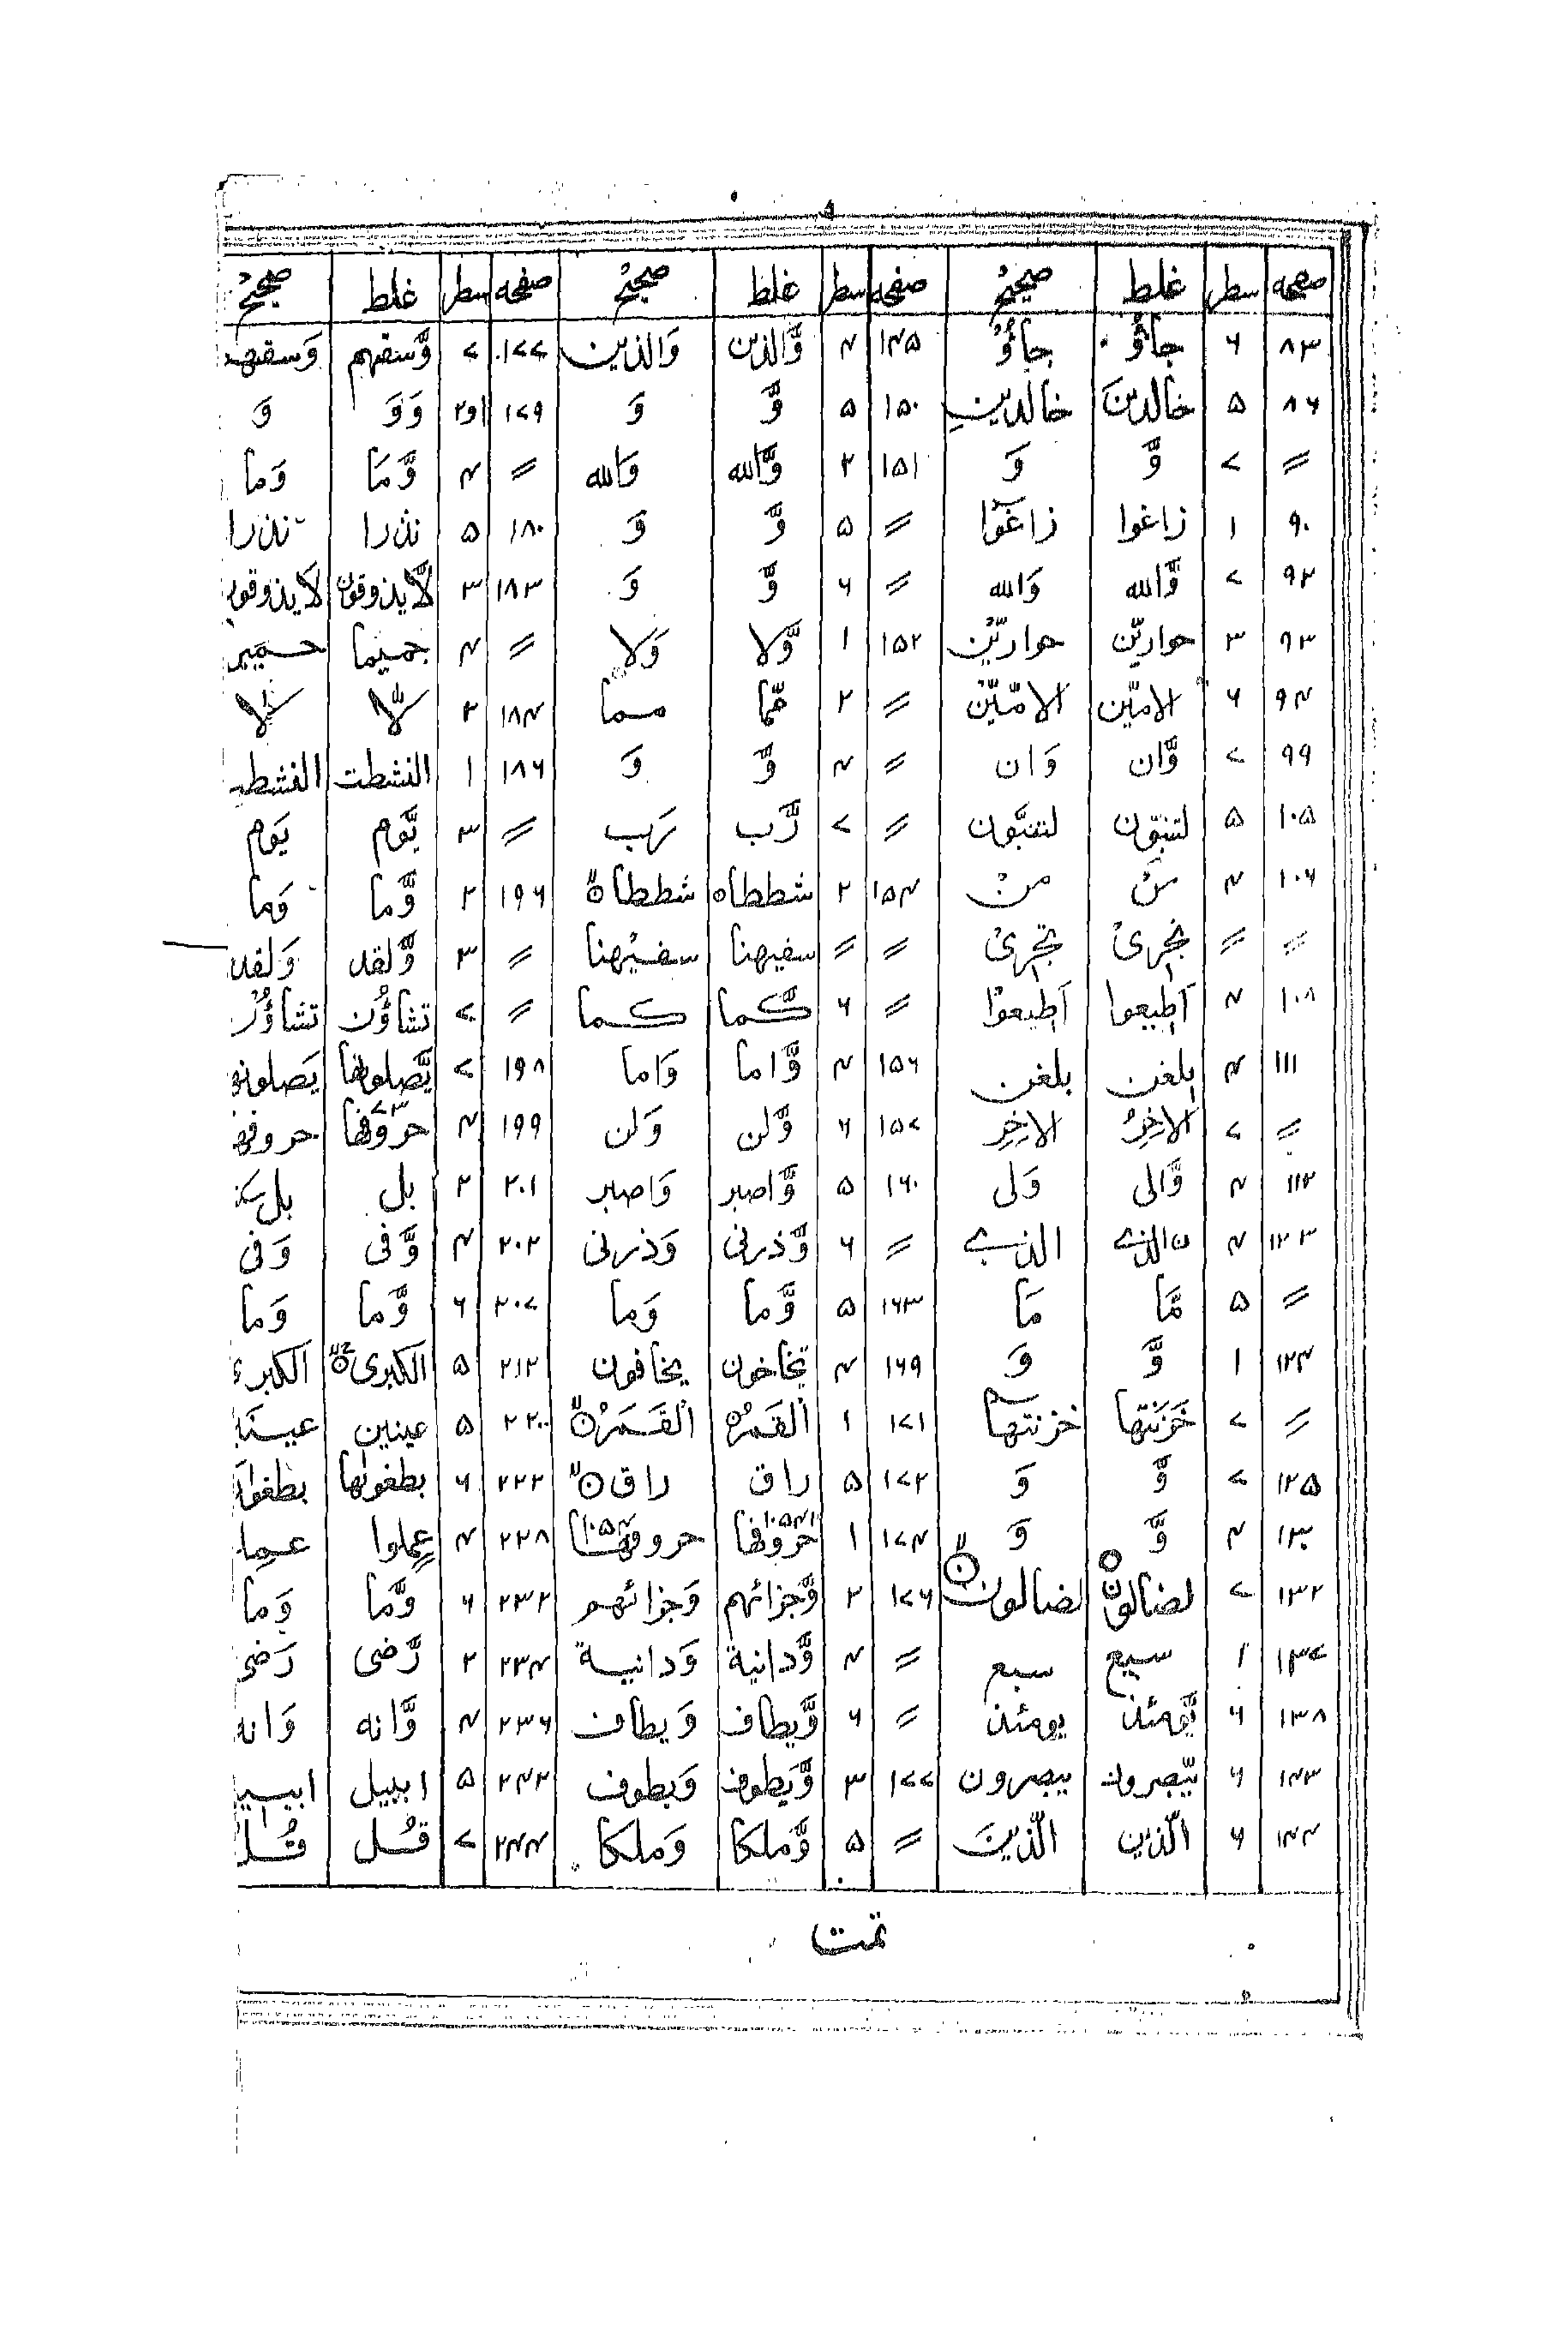 صفحه سطر غلط صحیح صفحه سطر غلط صحیح صفحه سطر غلط صحیح
۸۳ ۶ جاؤُ جاؤُ ۱۴۵ ۴ وَّالذین وَالذین ۱۷۷ ۷ وَّسقهم وَسقهم
۸۶ ۵ خالدینَ خالدینِ ۱۵۰ ۵ وَّ وَ ۱۷۹ ۱و۲ وَوَ وَ
〃 ۷ وَّ وَ ۱۵۱ ۲ وَّالله وَالله 〃 ۴ وَّمَا وَما
۹۰ ۱ زاغوا زاغوْا 〃 ۵ وَّ وَ ۱۸۰ ۵ نذرا نذرا
۹۲ ۷ وَّالله وَالله 〃 ۶ وَّ وَ ۱۸۳ ۳ لَّایذوقون لَایذوقون
۹۳ ۳ حواریّن حواریّٖن ۱۵۲ ۱ وَّلا وَلا 〃 ۴ جمیما حمیم
۹۴ ۶ الامیّن الامّیّٖن 〃 ۲ مّما مما ۱۸۴ ۲
۹۹ ۷ وَّان وَان 〃 ۴ وَّ وَ ۱۸۶ ۱ النشطت النشط
۱۰۵ ۵ لتنبّون لتنبَّون 〃 ۷ رَّب رَب 〃 ۳ یَّوم یَوم
۱۰۶ ۴ منَ منْ ۱۵۴ ۲ شططاه شططاة 〃 ۱۹۶ ۲ وَّما وَما
〃 〃 تجری تجری 〃 〃 سفیهنا سفیْهنا 〃 ۳ وَّلقد وَلقد
۱۰۸ ۴ اَطیعوا اَطیعوْا 〃 ۶ كَّما كما 〃 ۷ تشاؤُن تشاؤُن
۱۱۱ ۴ بلغن بلغن ۱۵۶ ۴ وَّاما وَاما ۱۹۸ ۷ یَّصلونها یَصلونه
〃 ۷ الاخِرُ الاخِرِ ۱۵۷ ۶ وَّلن وَلن ۱۹۹ ۴ حرَوفها حروفه
۱۱۲ ۴ وَّالی وَلی ۱۶۰ ۵ وَّاصبر وَاصبر ۲۰۱ ۲ بل بل
۱۲۳ ۴ نالذے الذے 〃 ۶ وَّذرنی وَذرنی ۲۰۲ ۴ وَّفی وَفی
〃 ۵ مَّا مَا ۱۶۳ ۵ وَّما وَما ۲۰۷ ۶ وَّما وَما
۱۲۴ ۱ وَّ وَ ۱۶۹ ۴ تخاخون یخافون ۲۱۲ ۵ الكبری الكبر
〃 ۷ خَزَنَتها خزنتها ۱۷۱ ۱ اَلقمرُ اَلقَمَرُ ۲۲۰ ۵ عینین عینَا
۱۲۵ ۷ وَّ وَ ۱۷۲ ۵ راق راق ۲۲۲ ۶ بطغوٰلها بطغوٰ
۱۳۰ ۴ وَّ وَ ۱۷۴ ۱ حروفها حروفها ۲۲۸ ۴ عملوا عمل
۱۳۲ ۷ لضالون لضالون ۱۷۶ ۲ وَّجزائهم وَجزائهم ۲۳۲ ۶ وَّما وَما
۱۳۷ ۱ سیع سبع 〃 ۴ وَّدانیة وَدانیة ۲۳۴ ۲ رَّضی رَضی
۱۳۸ ۶ یَّومئذ یومئذ 〃 ۶ وَّیطاف وَیطاف ۲۳۶ ۴ وَّانه وَانه
۱۴۳ ۶ یّبصرون یبصرون ۱۷۷ ۳ وَّیطوف وَیطوف ۲۴۲ ۵ ابلیل ابیی
۱۴۴ ۶ الّذین الّذینَ 〃 ۵ وَّملكا وَملكا ۲۴۴ ۷ قل قُل
تمت